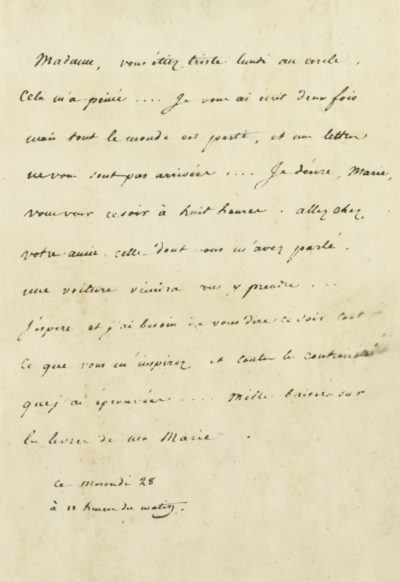 Madame, vous étiez triste lundi au cercle,
Cela m'a peiné .... Je vous ai écrit deux fois
mais tout le monde est parti, et mes lettres
ne vous sont pas arrivées .... Je désire, Marie,
vous voir ce soir à huit heures. allez chez
votre amie, celle dont vous m'avez parlé.
une voiture viendra vous y prendre ...
J'espère et j'ai besoin de vous dire ce soir tout
ce que vous m'inspirez et toutes les contrariétés
que j'ai éprouvées .... Mille baisers sur
les lèvres de ma Marie.
ce mercredi 28
à 11 heures du matin.